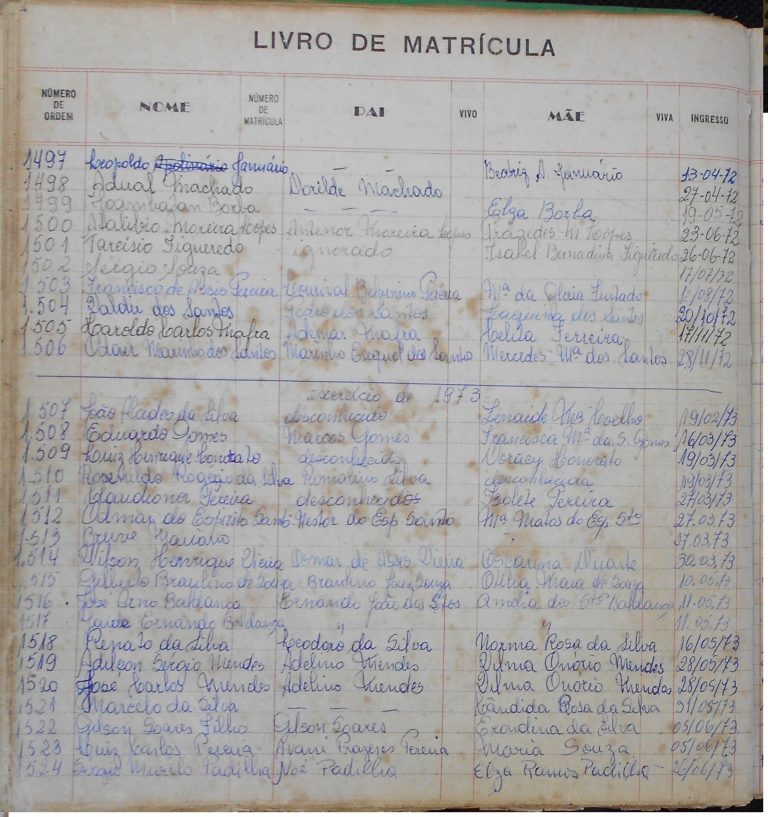 LIVRO DE MATRÍCULA
NÚMERO DE ORDEM NOME NÚMERO DE MATRÍCULA PAI VIVO MÃE VIVA INGRESSO
1497 Leopoldo Apolinário Januário — — Beatriz A. Januário 13-04-72
1498 Machado Dorilde Machado 27-04-72
1499 Borba — — Elza Borba 19-05-72
1500 Moreira Lopes Antenor Moreira Lopes M Lopes 23-06-72
1501 Tarcisio Figueredo ignorado Isabel Bernadina Figueredo 26-06-72
1502 Sergio Souza 17/07/72
1.503 Francisco de Assis Pereira Pereira Mª da Gloria Furtado /08/72
1.504 Valdir dos Santos Pedro dos Santos Joaquina dos Santos 20/10/72
1.505 Haroldo Carlos Mafra Ademar Mafra Celita Ferreira 17/11/72
1.506 Odair Marinho dos Santos Marinho dos Santos Mercedes Mª dos Santos 28/11/72
exercício de 1973
1.507 João Alcides da Silva desconhecido Zenaide Coelho 19/02/73
1.508 Eduardo Gomes Marcos Gomes Francisca Mª da S. Gomes 16/03/73
1.509 Luiz Henrique Honorato desconhecido Honorato 19/03/73
1.510 da Silva Romalino Silva desconhecida 19/03/73
1511 Claudionor Pereira desconhecidos Isolete Pereira 27/03/73
1512 Odmar do Espirito Santo Nestor do Esp. Santo Mª Matos do Esp. Stº 27.03.73
1513 27.03.73
1.514 Wilson Henrique Vieira Osmar de Assis Vieira Oscarina Duarte 30.03.73
1.515 Gilberto Braulino de Souza Braulino Souza Otilia Maria de Souza 10.05.73
1516 José Baldança Ernando João dos Stos Amelia dos Stos Baldança 11.05.73
1517 Ernando Baldança " " 11.05.73
1518 Renato da Silva Leodoro da Silva Norma Rosa da Silva 16/05/73
1519 Adilson Sergio Mendes Adelino Mendes Dilma Onório Mendes 28/05/73
1520 José Carlos Mendes Adelino Mendes Dilma Onório Mendes 28/05/73
1521 Marcelo da Silva — — Cândida Rosa da Silva 31/05/73
1522 Gilson Soares Filho Gilson Soares Erondina da Silva 05/06/73
1523 Luiz Carlos Pereira Prazeres Pereira Maria Souza 05/06/73
1524 Sergio Murilo Padilha Noé Padilha Elza Ramos Padilha 26/06/73